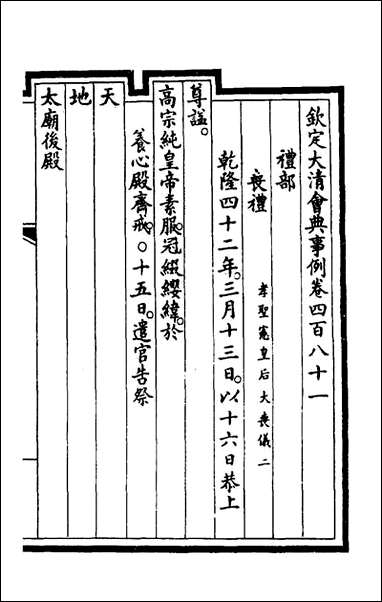 欽定大清會典事例卷四百八十一
禮部
喪禮 孝聖憲皇后大喪儀二
乾隆四十二年。三月十三日。以十六日恭上
尊諡。
高宗純皇帝素服。冠綴纓緯。於
養心殿齊戒。○十五日。遣官告祭
天
地
太廟後殿